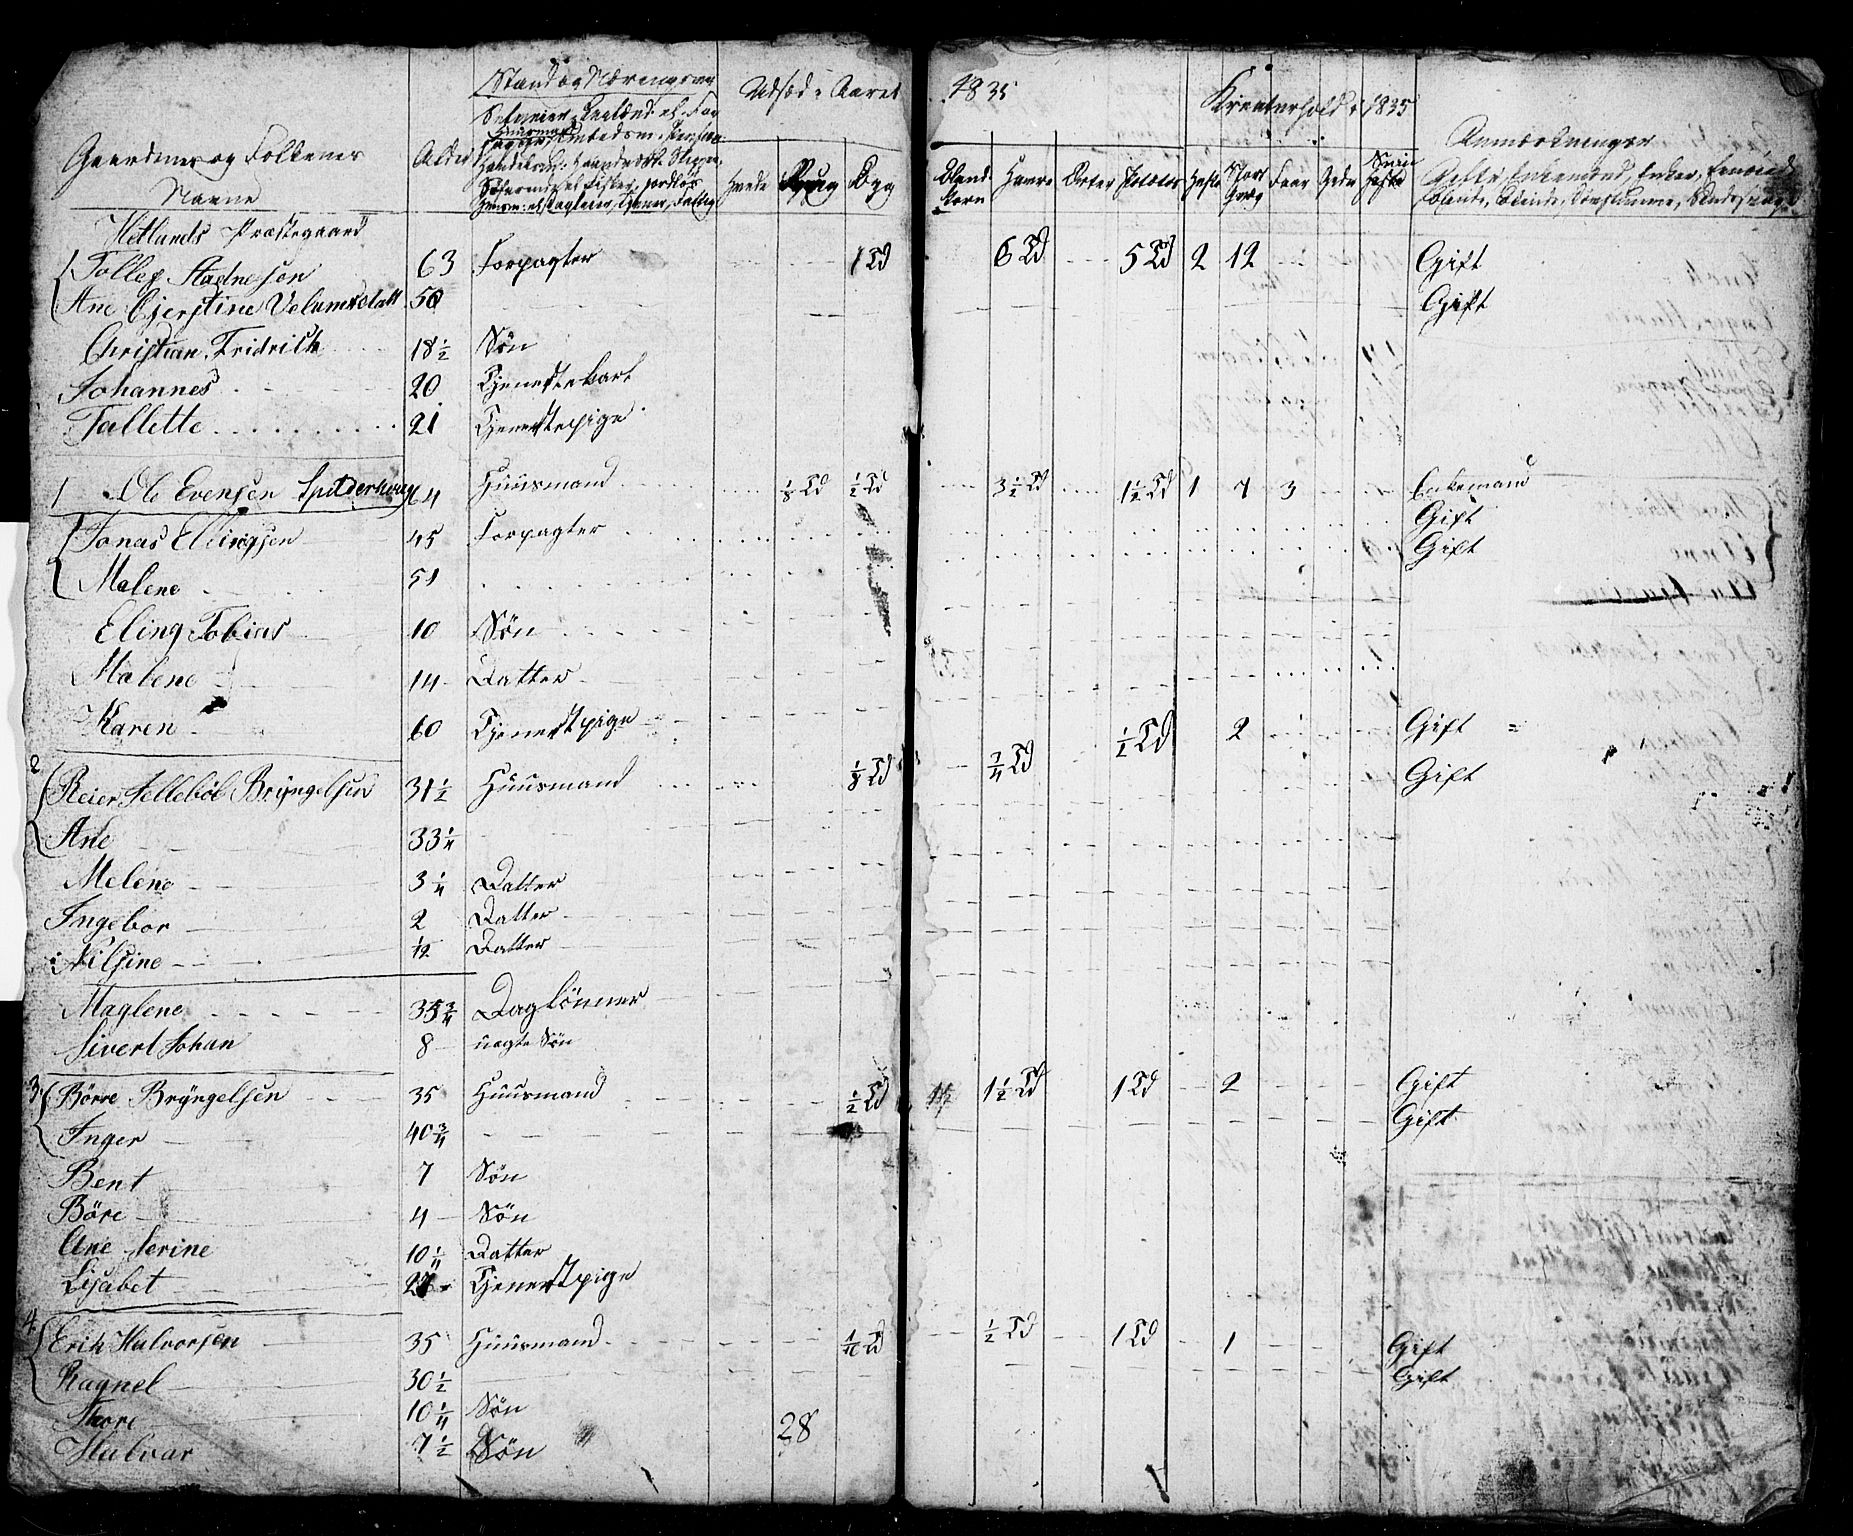 Gaardenes og Folkenes
Navne
Alder
Stand og Næringsvei
Udsæd i Aaret 1835
Hvede Rug Byg Bland korn Havre Erter Potetos
Kreaturhold i 1835
Heste Stort Qvæg Faar Geder Sviin
Anmærkninger
Hetlands Præstegaard
Tollef Stadnesen 63 Forpagter 1 Td 6 Td 5 Td 2 12 Gift
Ane Gjerstine 50 Gift
Christian Fridrich 18 1/2 Søn
Johannes 20 Tjenestekarl
Tallette 21 Tjenestepige
1 Ole Evensen 64 Huusmand 1/8 Td 1/2 Td 3 1/2 Td 1 1/2 Td 1 7 3 Enkemand
Jonas Ellingsen 45 Forpagter Gift
Malene 51 Gift
Eling Tobias 10 Søn
Malene 14 Datter
Karen 60 Tjenestpige
2 Reier Sellebøl Bryngelsen 31 1/2 Huusmand 1/8 Td 3/4 Td 1/2 Td 2 Gift
Ane 33 1/4 Gift
Melene 3 1/4 Datter
Ingebor 2 Datter
Nilsine 1/2 Datter
Maglene 35 3/4 Daglønner
Sivert Johan 8 uægte Søn
3 Børre Bryngelsen 35 Huusmand 1/2 Td 1 1/2 Td 1 Td 2 Gift
Inger 40 3/4 Gift
Bent 7 Søn
Böre 4 Søn
Ane Serine 10 1/4 Datter
Lisabet Tjenestpige
4 Erik Halvorsen 35 Huusmand 1/16 Td 1/2 Td 1 Td 1 Gift
Ragnel 30 1/2 Gift
Thore 10 1/4 Søn
Halvar 7 1/2 Søn
28